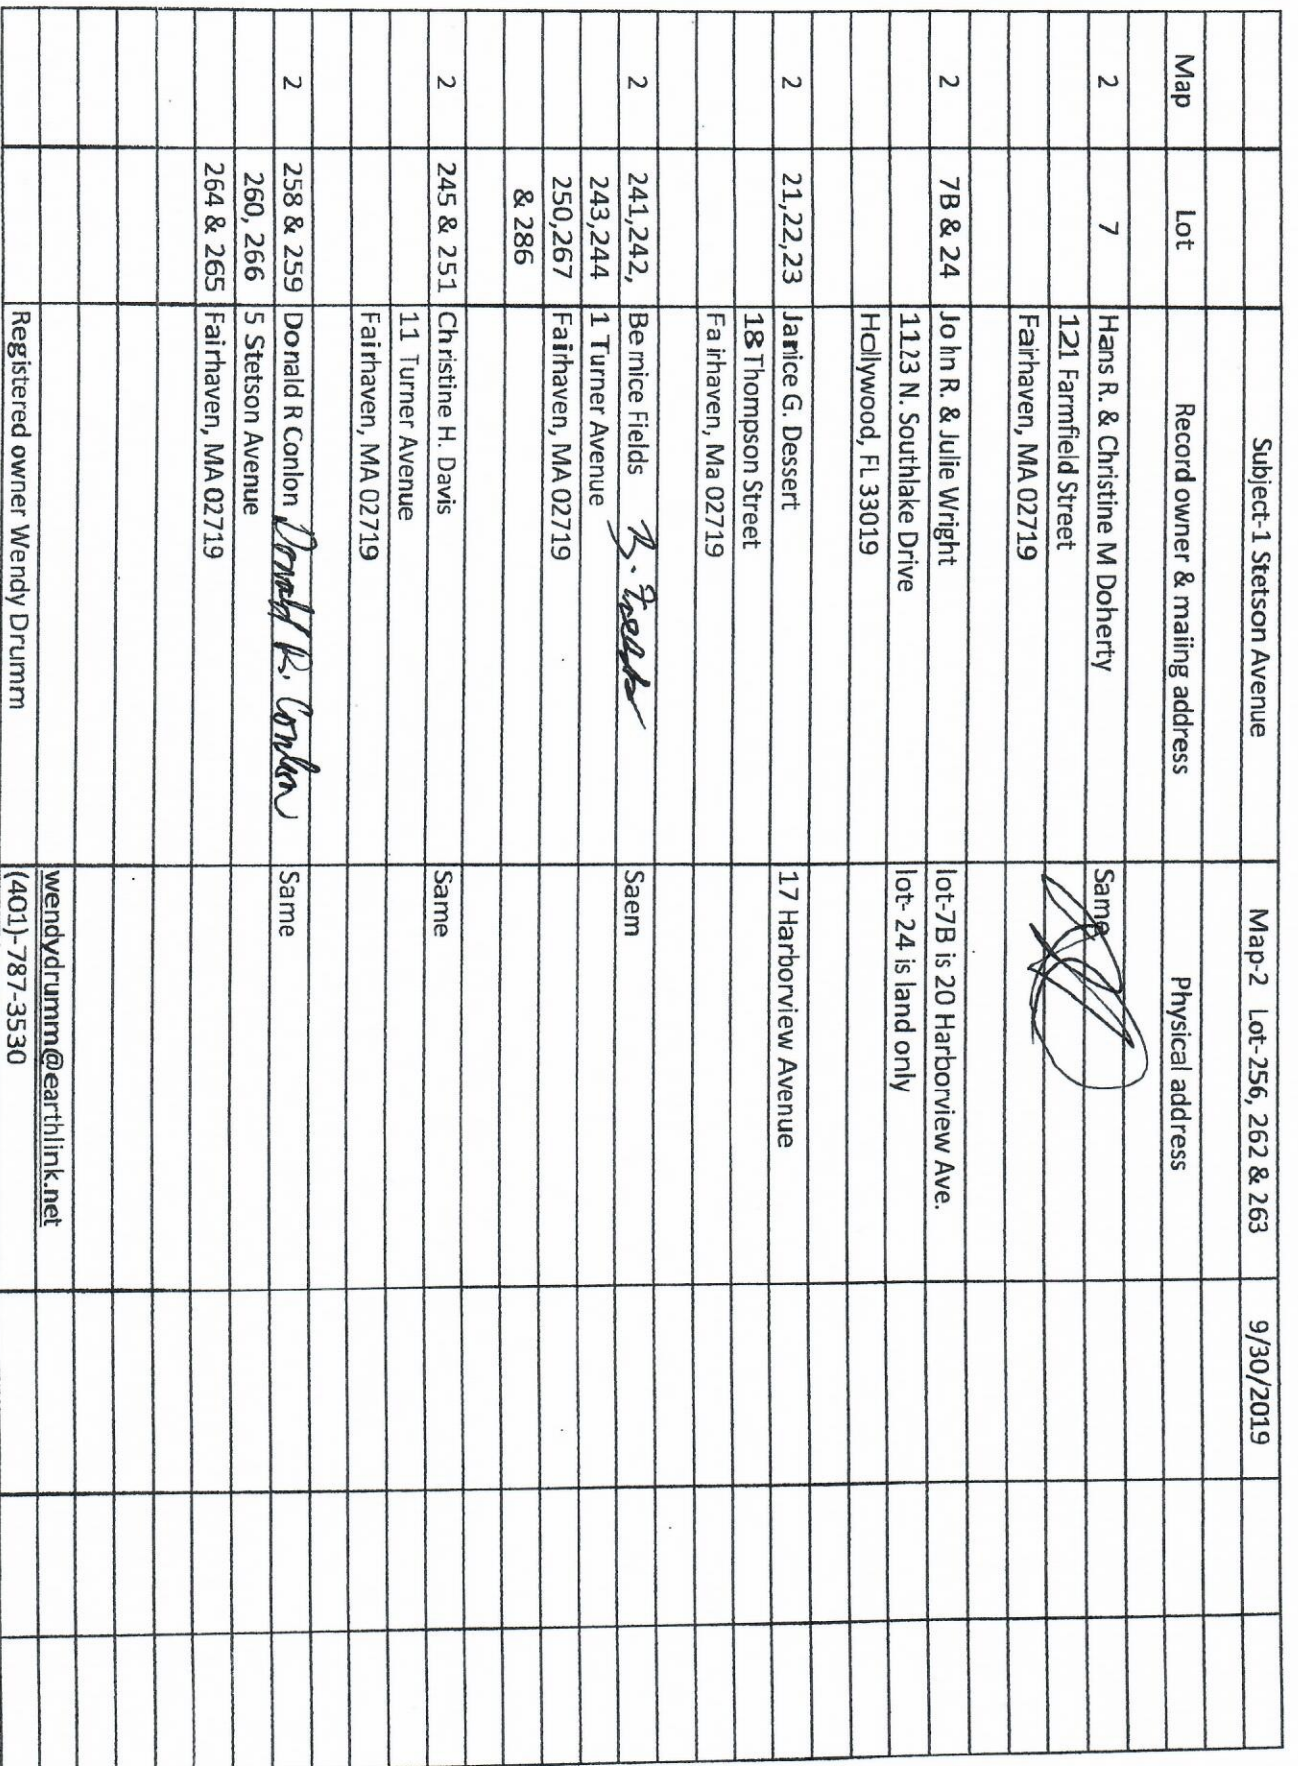 Subject-1 Stetson Avenue Map-2 Lot-256, 262 & 263 9/30/2019
Map Lot Record owner & maiing address Physical address
2 7 Hans R. & Christine M Doherty Same
121 Farmfield Street
Fairhaven, MA 02719
2 7B & 24 John R. & Julie Wright lot-7B is 20 Harborview Ave.
1123 N. Southlake Drive lot- 24 is land only
Hollywood, FL 33019
2 21,22,23 Janice G. Dessert 17 Harborview Avenue
18 Thompson Street
Fairhaven, Ma 02719
2 241,242, Bernice Fields B. Fields Saem
243,244 1 Turner Avenue
250,267 Fairhaven, MA 02719
& 286
2 245 & 251 Christine H. Davis Same
11 Turner Avenue
Fairhaven, MA 02719
2 258 & 259 Donald R Conlon Donald R. Conlon Same
260, 266 5 Stetson Avenue
264 & 265 Fairhaven, MA 02719
wendydrumm@earthlink.net
Registered owner Wendy Drumm (401)-787-3530